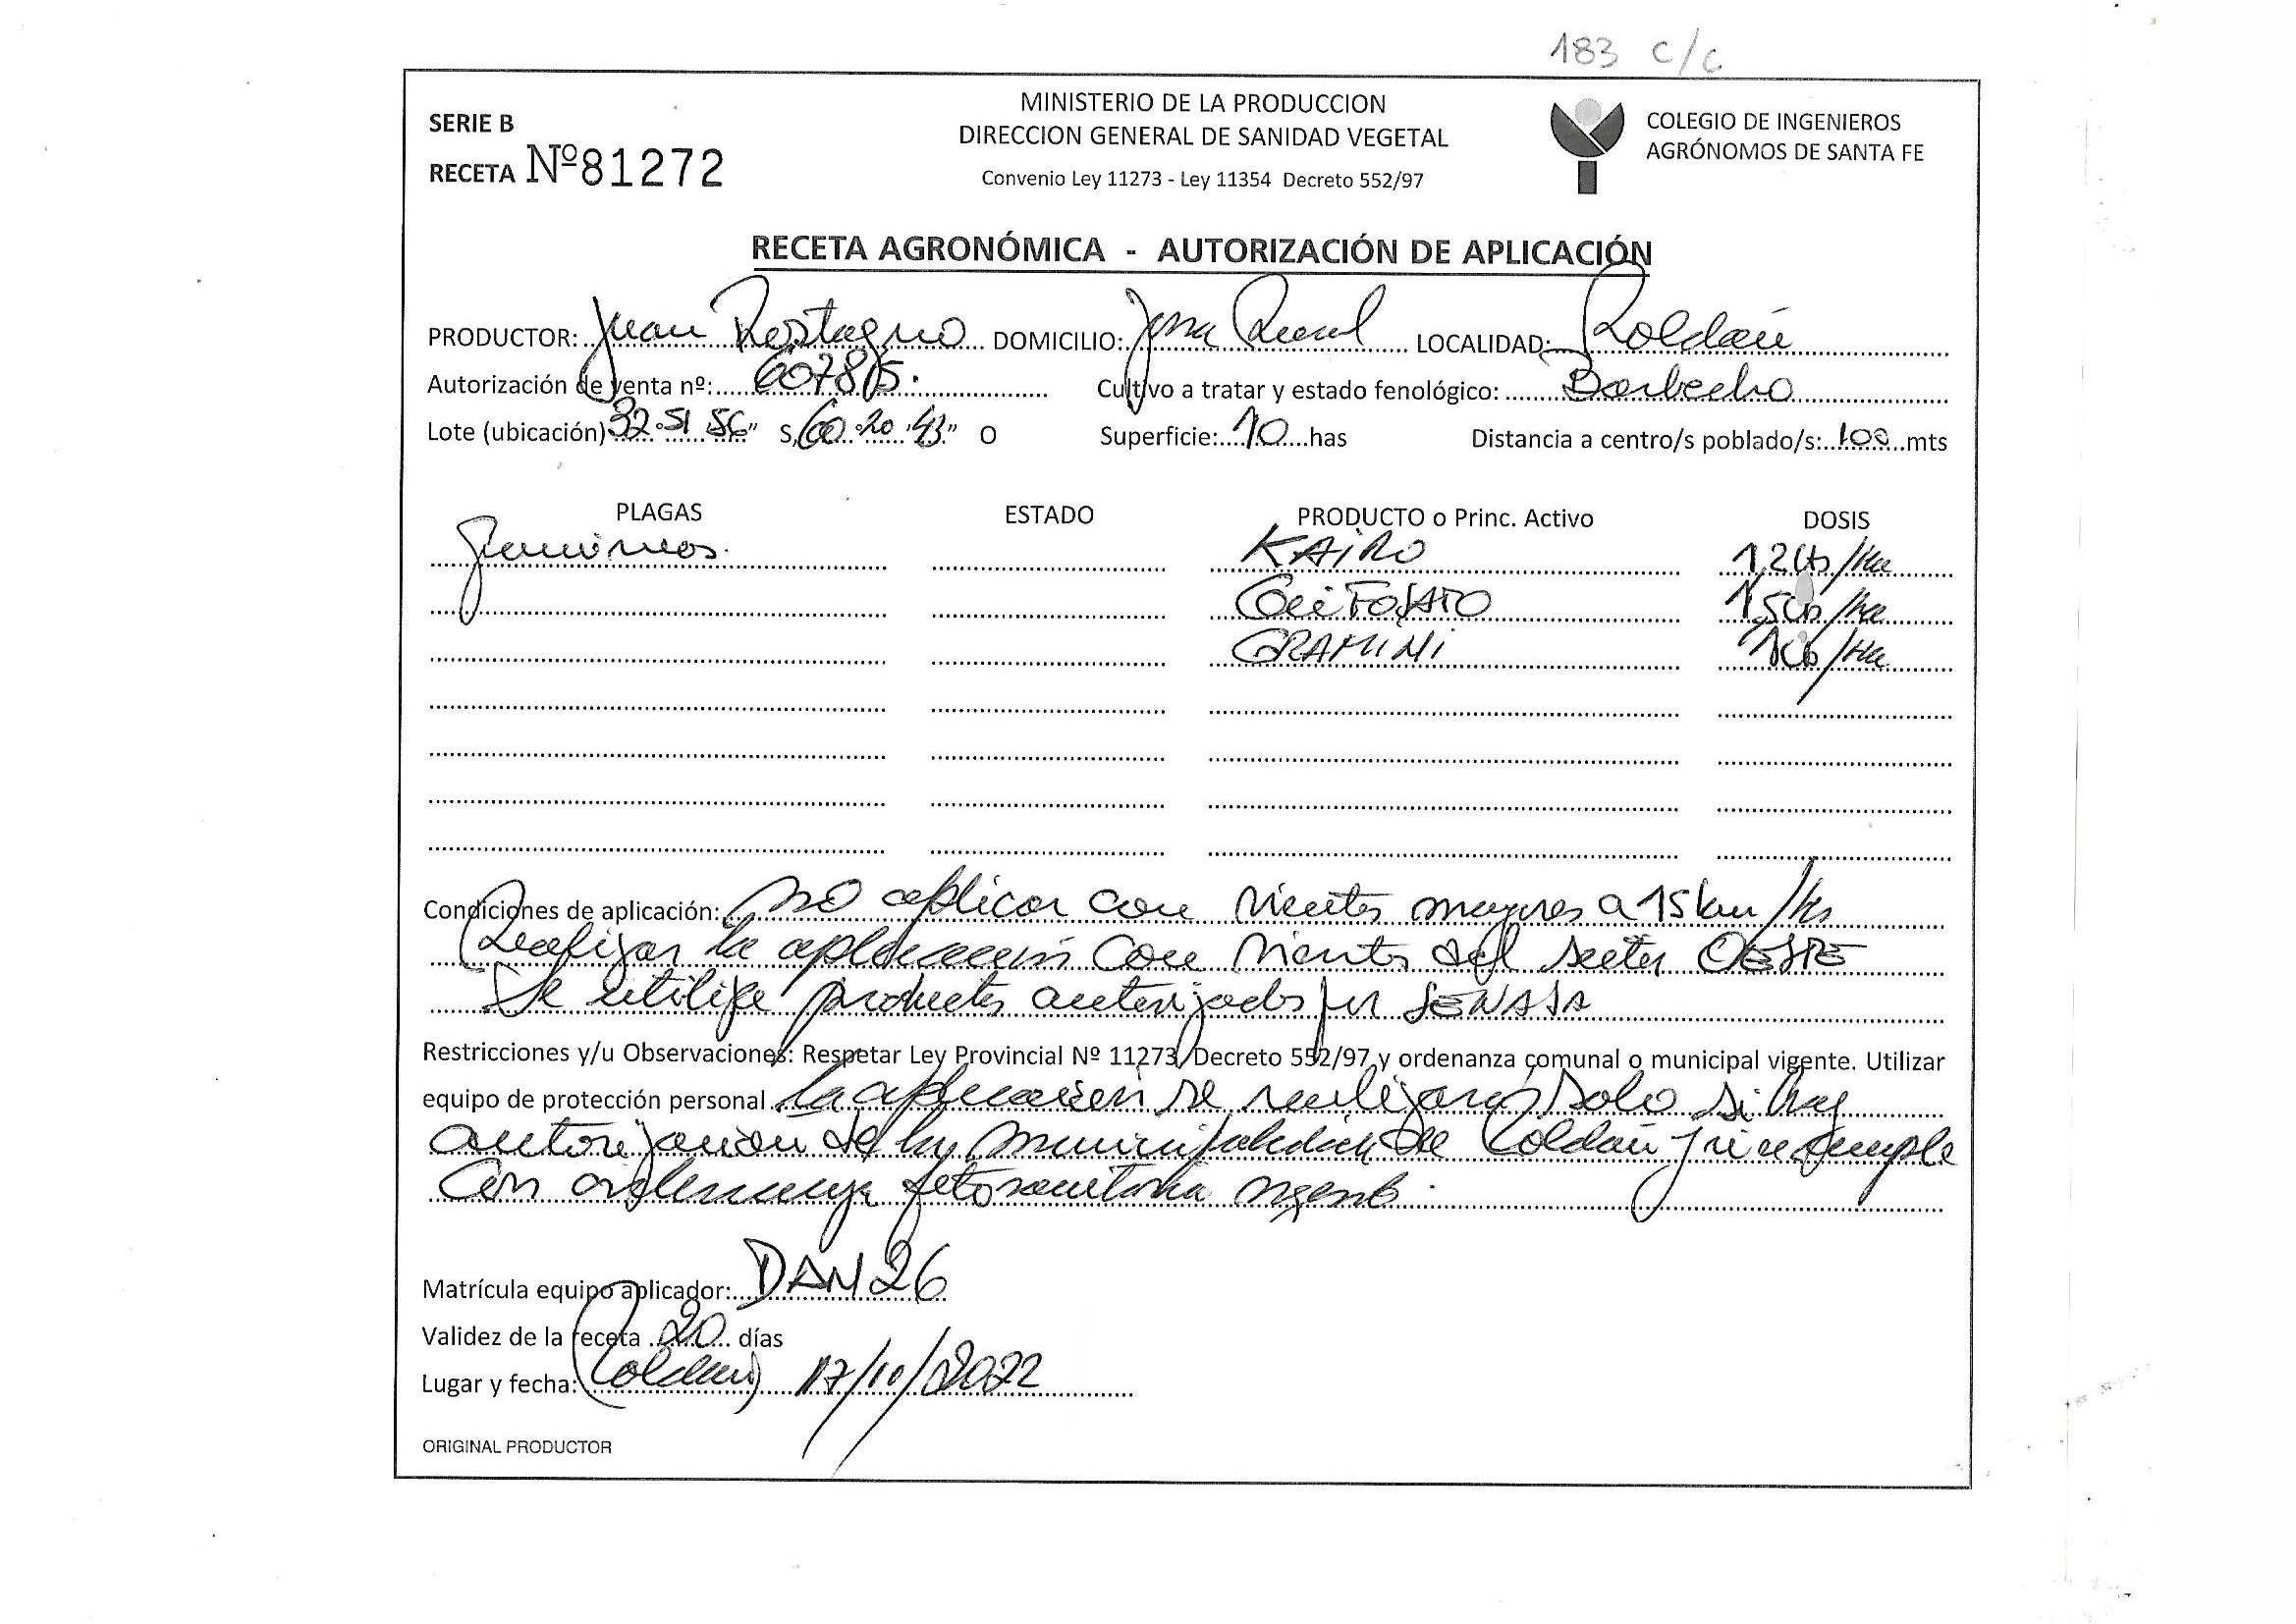 183 c/c
SERIE B
RECETA Nº81272
MINISTERIO DE LA PRODUCCION
DIRECCION GENERAL DE SANIDAD VEGETAL
Convenio Ley 11273 - Ley 11354 Decreto 552/97
COLEGIO DE INGENIEROS
AGRÓNOMOS DE SANTA FE
RECETA AGRONÓMICA - AUTORIZACIÓN DE APLICACIÓN
PRODUCTOR: Juan Rostagno DOMICILIO: Zona Rural LOCALIDAD: Roldán
Autorización de venta nº: 607815. Cultivo a tratar y estado fenológico: Barbecho
Lote (ubicación) 32º 51 56" S, 60º 20 43" O Superficie: 10 has Distancia a centro/s poblado/s: 100 mts
PLAGAS ESTADO PRODUCTO o Princ. Activo DOSIS
Gramíneas. KAIRO 1,2 lts/Ha
GLIFOSATO 1,5 lts/ha
GRAMINI 1 lts/Ha
Condiciones de aplicación: No aplicar con vientos mayores a 15 km/hs
Realizar la aplicación con vientos del sector OESTE
Se utilize productos autorizados por SENASA
Restricciones y/u Observaciones: Respetar Ley Provincial Nº 11273, Decreto 552/97 y ordenanza comunal o municipal vigente. Utilizar
equipo de protección personal La aplicación se realizará solo si hay
autorización de la municipalidad de Roldán y si cumple
con ordenanza fitosanitaria vigente.
Matrícula equipo aplicador: DAN 26
Validez de la receta 20 días
Lugar y fecha: Roldán 17/10/2022
ORIGINAL PRODUCTOR